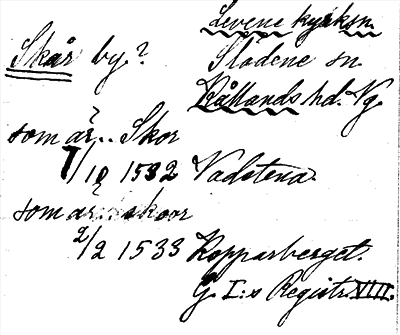 Levene kyrksn.
Skår by? Slädene sn
Kållands hd. Vg.
som är.. Skor
7/10 1532 Vadstena.
som är... skoor
2/2 1533 Kopparberget.
G. I:s Registr. VIII.